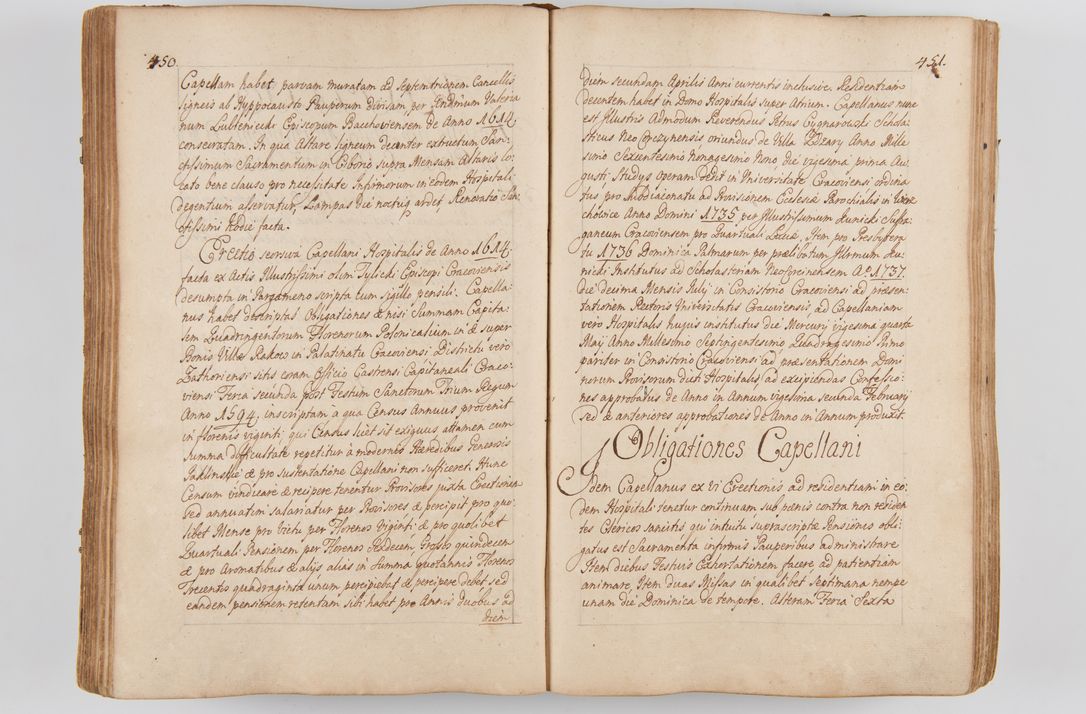 450.
Capellam habet parvam muratam ad Septemtrionem Cancellis
ligneis ab Hyppocausto Pauperum divisam per Valeria
num Lubienicki Episcopum Bacchoviensem de Anno 1614
conseruatam. In qua Altare ligneum decenter extructum San-
ctissimum Sacramentum in Ciborio supra Mensam Altaris lo-
cato bene clauso pro necessitate Infirmorum in eodem Hospitali
degentium asservatur, Lampas die noctuq ardet, Renovatio San
ctissimi hodie facta.
Erectio seorsiva Capellani Hospitalis de Anno 1614.
facta ex Actis Illustrissimi olim Tylicki Episcopi Cracoviensis
desumpta in Pargameno scripta cum sigillo pensili. Capella-
nus habet descriptas Obligationes & nisi Summam Capita-
lem Quadringentorum Florenorum Polonicalium in & super
Bonis Villæ Rakow in Palatinatu Cracoviensi Districtu vero
Zathoriensi sitis coram Officio Castrensi Capitaneali Craco-
viensi Feria secunda post Festum Sanctorum Trium Regum
Anno 1594. inscriptam a qua Census Annuus provenit
in florenis viginti qui Census licet sit exiguus attamen cum
summa difficultate repetitur à modernis Hæredibus Generosis
& pro sustentatione Capellani non sufficeret. Hunc
Censum vindicare & recipere tenentur Provisores juxta Erectionem
sed annuatim salariatur per Provisores & percipit pro quo-
libet Mense pro Victu per Florenos Viginti & pro quolibet
Quartuali Pensionem per Florenos Sexdecem, Grossos quindecem
& pro Aromatibus & alijs alias in summa quotannis Florenos
Trecentos quadraginta unum percipiebat & percipere debet sed
eandem pensionem retentam sibi habet pro Annis duobus ad
diem
451.
diem secundam Aprilis Anni currentis inclusive. Residentiam
decentem habet in Domo Hospitalis super Atrium. Capellanus nunc
est Illustris Admodum Reverendus Petrus Cygnarowski Schola-
sticus Neo Gorzynensis oriundus de Villa Zdzary Anno Mille
simo Sexcentesimo Nonagesimo Nono die vigesima prima Au-
gusti, Studijs operam dedit in Universitate Cracoviensi ordina
tus pro Subdiaconatu ad Provisionem Ecclesiæ Parochialis in
Anno Domini 1735 per Illustrissimum Kunicki Suffra-
ganeum Cracoviensem pro Quartuali Luciæ, Item pro Presbytera
tu 1736 Dominica Palmarum per prælibatum Illrmum Ku-
nicki Institutus ad Scholasteriam Ao 1737.
die decima Mensis Julij in Consistorio Cracoviensi ad præsen-
tationem Rectoris Universitatis Cracoviensis ad Capellaniam
vero Hospitalis hujus institutus die Mercurij vigesima quarta
Maij Anno Millesimo Septingentesimo Quadragesimo Primo
pariter in Consistorio Cracoviensi ad præsentationem Domi
norum Provisorum dicti Hospitalis ad excipiendas Confessio-
nes approbatus de Anno in Annum vigesima secunda Februarij
sed & anteriores approbationes de Anno in Annum produxit.
Obligationes Capellani
Idem Capellanus ex vi Erectionis ad residentiam in eo-
dem Hospitali tenetur continuam sub pœnis contra non residen
tes Clericos sancitis qui intuitu suprascriptæ Pensionis obli-
gatus est Sacramenta infirmis Pauperibus administrare
Item diebus Festivis Exhortationem facere ad patientiam
animare, Item duas Missas in qualibet Septimana nempe
unam die Dominica de tempore. Alteram Feria Sexta